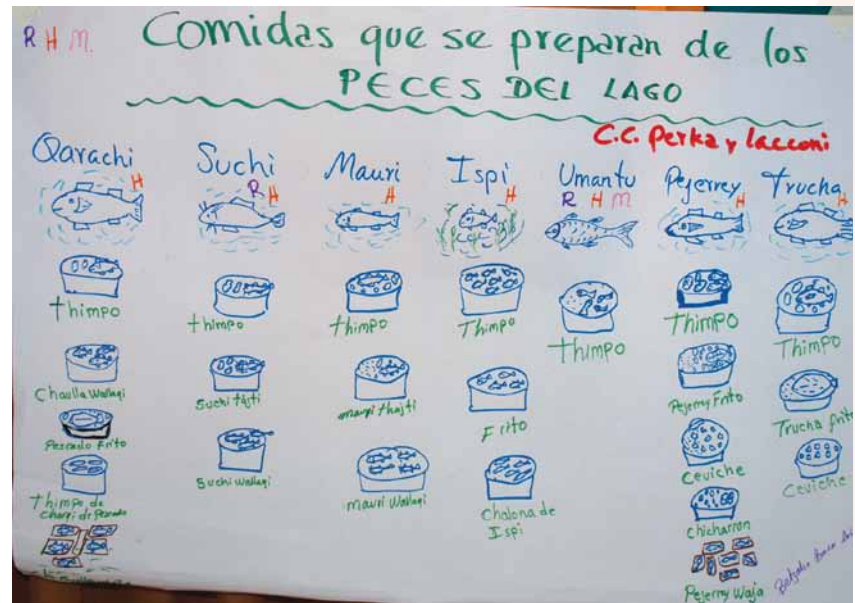 R H M.
Comidas que se preparan de los
PECES DEL LAGO
C.C. Perka y Lacconi
Qarachi
H
thimpo
Chaulla Wallaqi
Pescado Frito
Thimpo de
Charqi de Pescado
Suchi
R H
thimpo
Suchi tajti
Suchi Wallaqi
Mauri
H
thimpo
mauri thajti
mauri Wallaqi
Ispi
H
Thimpo
Frito
Chalona de
Ispi
Umantu
R H M
Thimpo
Pejerrey
H
Thimpo
Pejerrey Frito
Ceviche
Chicharron
Pejerrey Waja
Trucha
H
Thimpo
Trucha frita
Ceviche